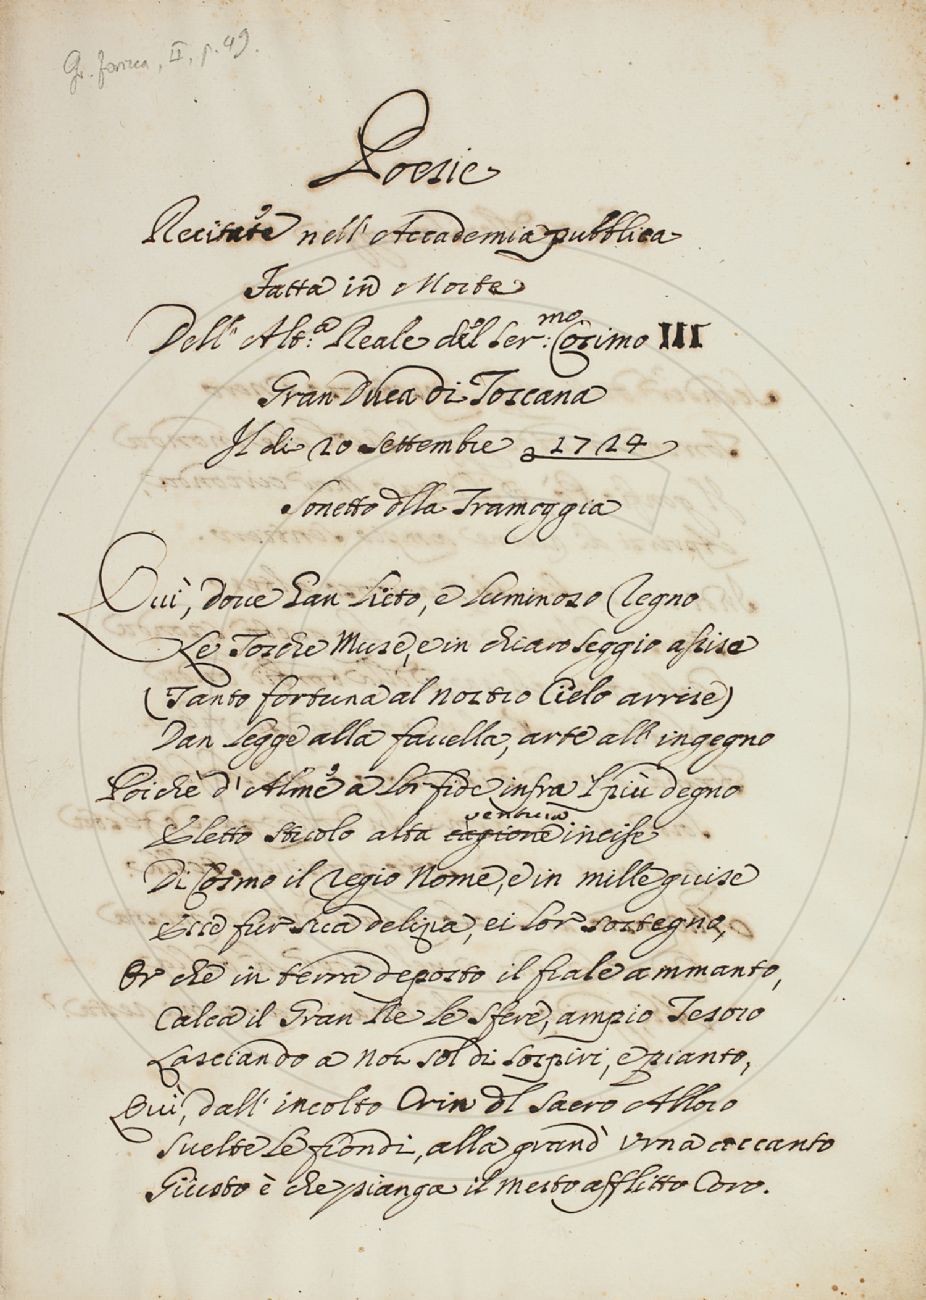 Gr. farina, II, p. 49.
Poesie
Recitate nell' Accademia pubblica
Fatta in Morte
Dell' Alt:a Reale del Ser:mo Cosimo III
Gran Duca di Toscana
Il di 20 Settembre 1724
Sonetto dlla Tramoggia
Quì, dove han lieto, e luminoso regno
Le Tosche Muse, e in chiaro seggio assise
(Tanto fortuna al nostro Cielo arrise)
Dan legge alla favella, arte all' ingegno
Poichè d' Alme a lor fide infra 'l più degno
Eletto stuolo alta ventura incise
Di Cosmo il regio Nome, e in mille guise
Esse fur sua delizia, ei lor sostegno,
Or che in terra deposto il frale ammanto,
Calca il Gran Re le sfere, ampio Tesoro
Lasciando a noi sol di sospiri, e pianto,
Quì, dall' incolto Crin dl sacro Alloro
Svelte le frondi, alla grand' Urna accanto
Giusto è che pianga il mesto afflitto Coro.